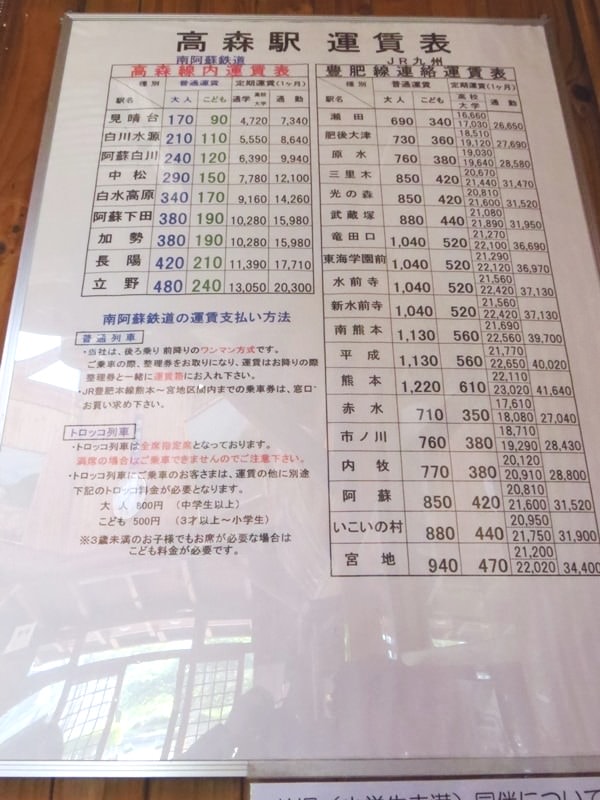 高森駅 運賃表
南阿蘇鉄道
高森線内運賃表
種別 普通運賃 定期運賃(1ヶ月)
駅名 大人 こども 通学 高校 大学 通勤
見晴台 170 90 4,720 7,340
白川水源 210 110 5,550 8,640
阿蘇白川 240 120 6,390 9,940
中松 290 150 7,780 12,100
白水高原 340 170 9,160 14,260
阿蘇下田 380 190 10,280 15,980
加勢 380 190 10,280 15,980
長陽 420 210 11,390 17,710
立野 480 240 13,050 20,300
南阿蘇鉄道の運賃支払い方法
普通列車
・当社は、後ろ乗り前降りのワンマン方式です。
ご乗車の際、整理券をお取りになり、運賃はお降りの際
整理券と一緒に運賃箱にお入れ下さい。
・JR豊肥本線熊本〜宮地区間内までの乗車券は、窓口で
お買い求め下さい。
トロッコ列車
・トロッコ列車は全席指定席となっております。
満席の場合はご乗車できませんのでご注意下さい。
・トロッコ列車にご乗車のお客さまは、運賃の他に別途
下記のトロッコ料金が必要となります。
大人 800円 (中学生以上)
こども 500円 (3才以上〜小学生)
※3歳未満のお子様でもお席が必要な場合は
こども料金が必要です。
JR九州
豊肥線連絡運賃表
種別 普通運賃 定期運賃(1ヶ月)
駅名 大人 こども 高校 大学 通勤
瀬田 690 340 16,660 17,030 26,650
肥後大津 730 360 18,510 19,120 27,690
原水 760 380 19,030 19,640 28,580
三里木 850 420 20,670 21,440 31,470
光の森 850 420 20,810 21,600 31,520
武蔵塚 880 440 21,080 21,890 31,950
竜田口 1,040 520 21,270 22,100 36,690
東海学園前 1,040 520 21,290 22,120 36,970
水前寺 1,040 520 21,560 22,420 37,130
新水前寺 1,040 520 21,560 22,420 37,130
南熊本 1,130 560 21,690 22,560 39,700
平成 1,130 560 21,770 22,650 40,020
熊本 1,220 610 22,110 23,020 41,640
赤水 710 350 17,610 18,080 27,040
市ノ川 760 380 18,710 19,290 28,430
内牧 770 380 20,120 20,910 28,800
阿蘇 850 420 20,810 21,600 31,520
いこいの村 880 440 20,950 21,750 31,900
宮地 940 470 21,200 22,020 34,400
同伴について